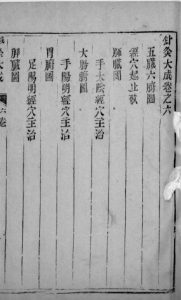 針灸大成卷之六
五臟六腑圖
經穴起止歌
肺臟圖
手太陰經穴主治
大腸腑圖
手陽明經穴主治
胃腑圖
足陽明經穴主治
脾臟圖
六卷